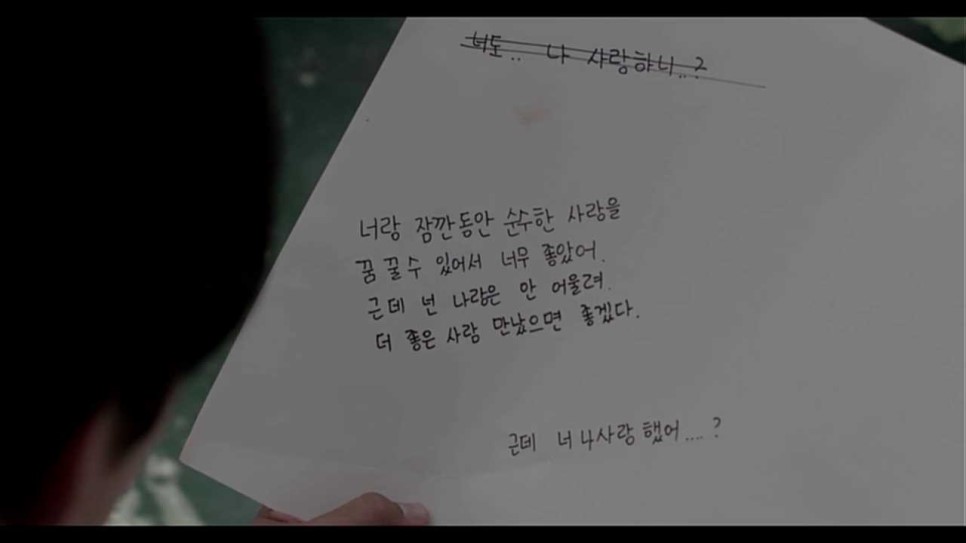 너도.. 나 사랑하니..?
너랑 잠깐동안 순수한 사랑을
꿈 꿀수 있어서 너무 좋았어.
근데 넌 나랑은 안 어울려.
더 좋은 사람 만났으면 좋겠다.
근데 너 나사랑 했어....?